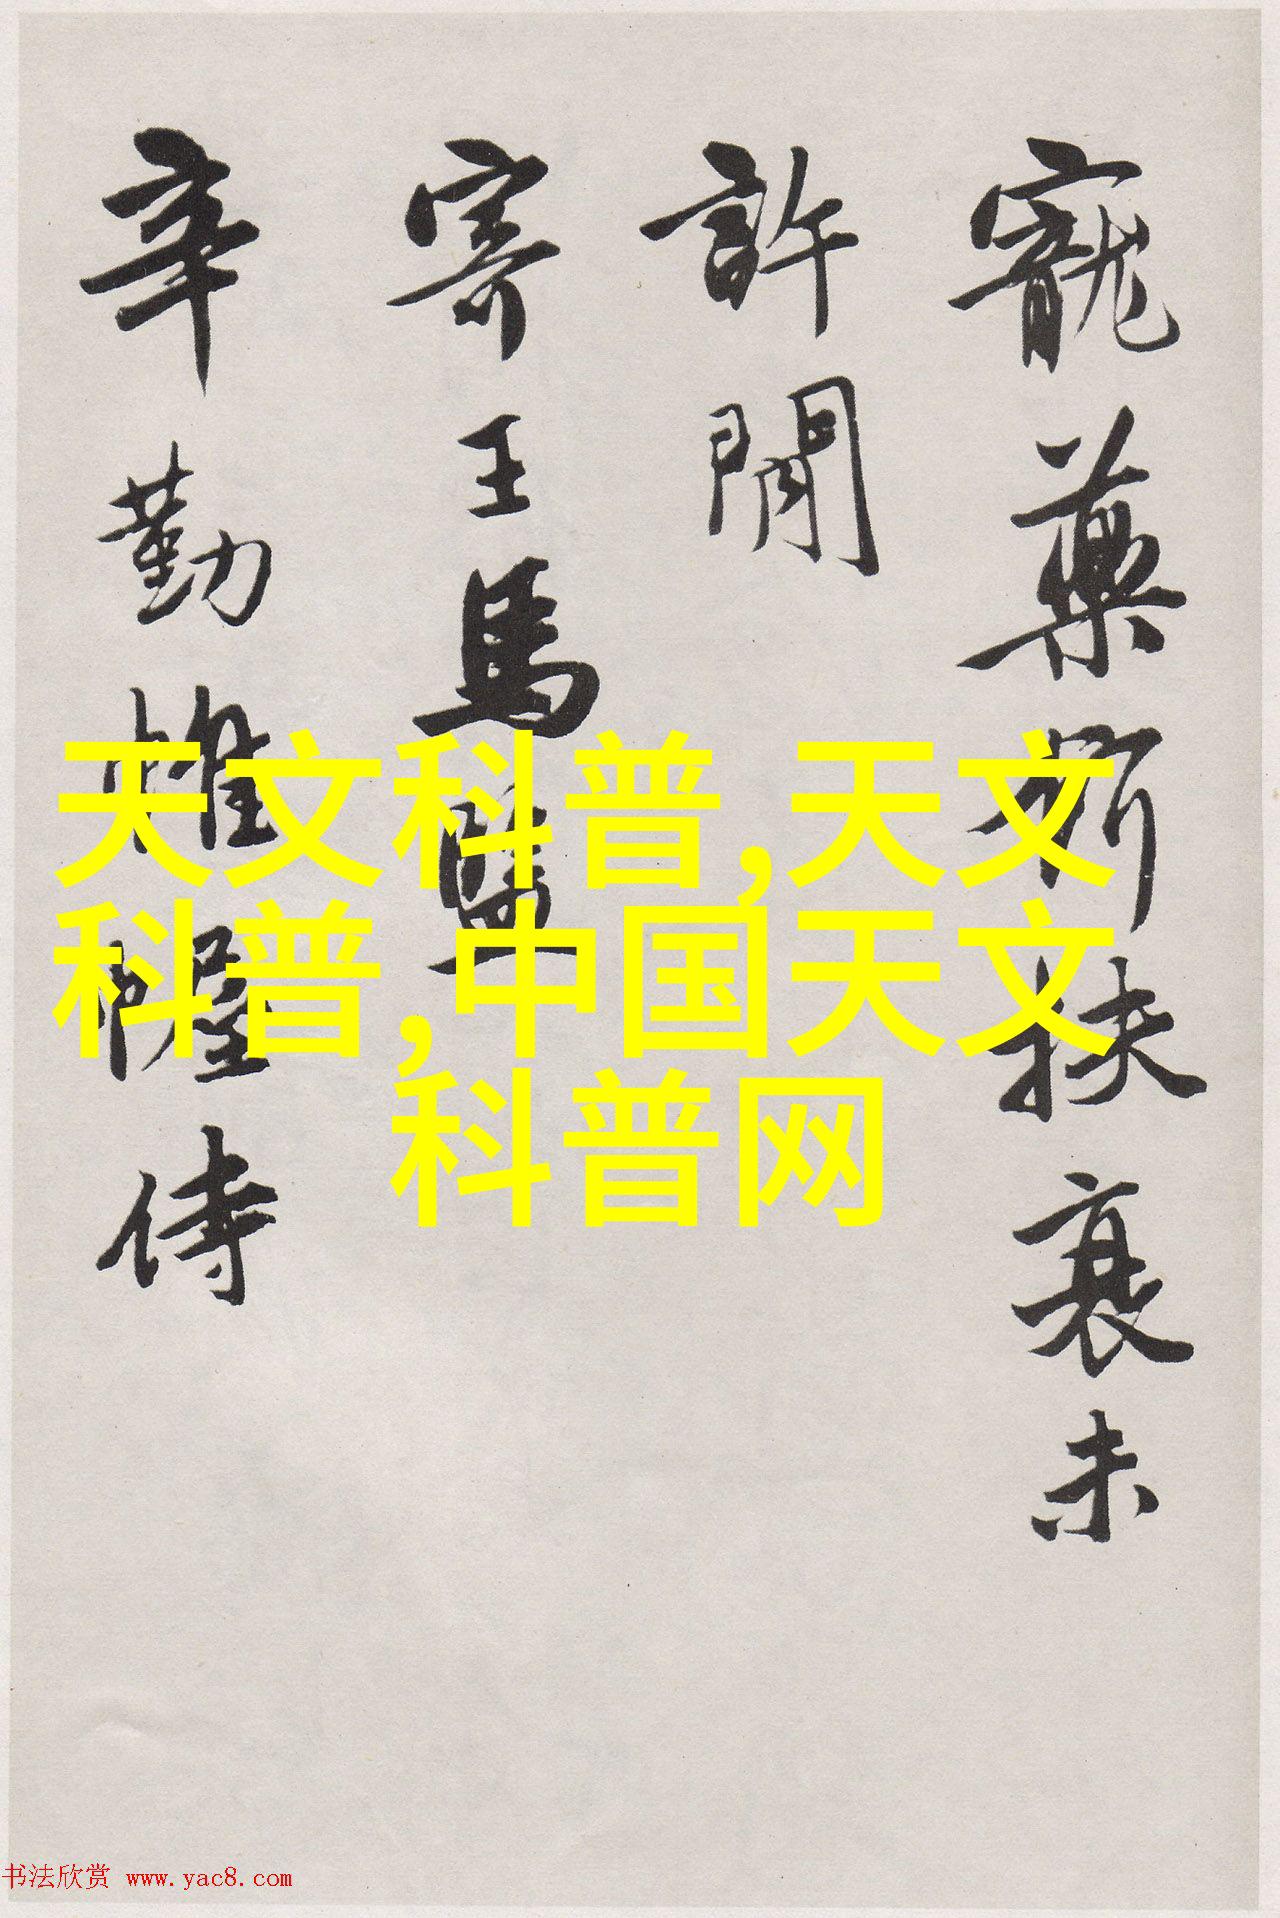 寵藥扶衰未
許閒
寄王馬
辛勤帷幄侍
天文科普,天文
科普,中国天文
科普网
书法欣赏 www.yac8.com